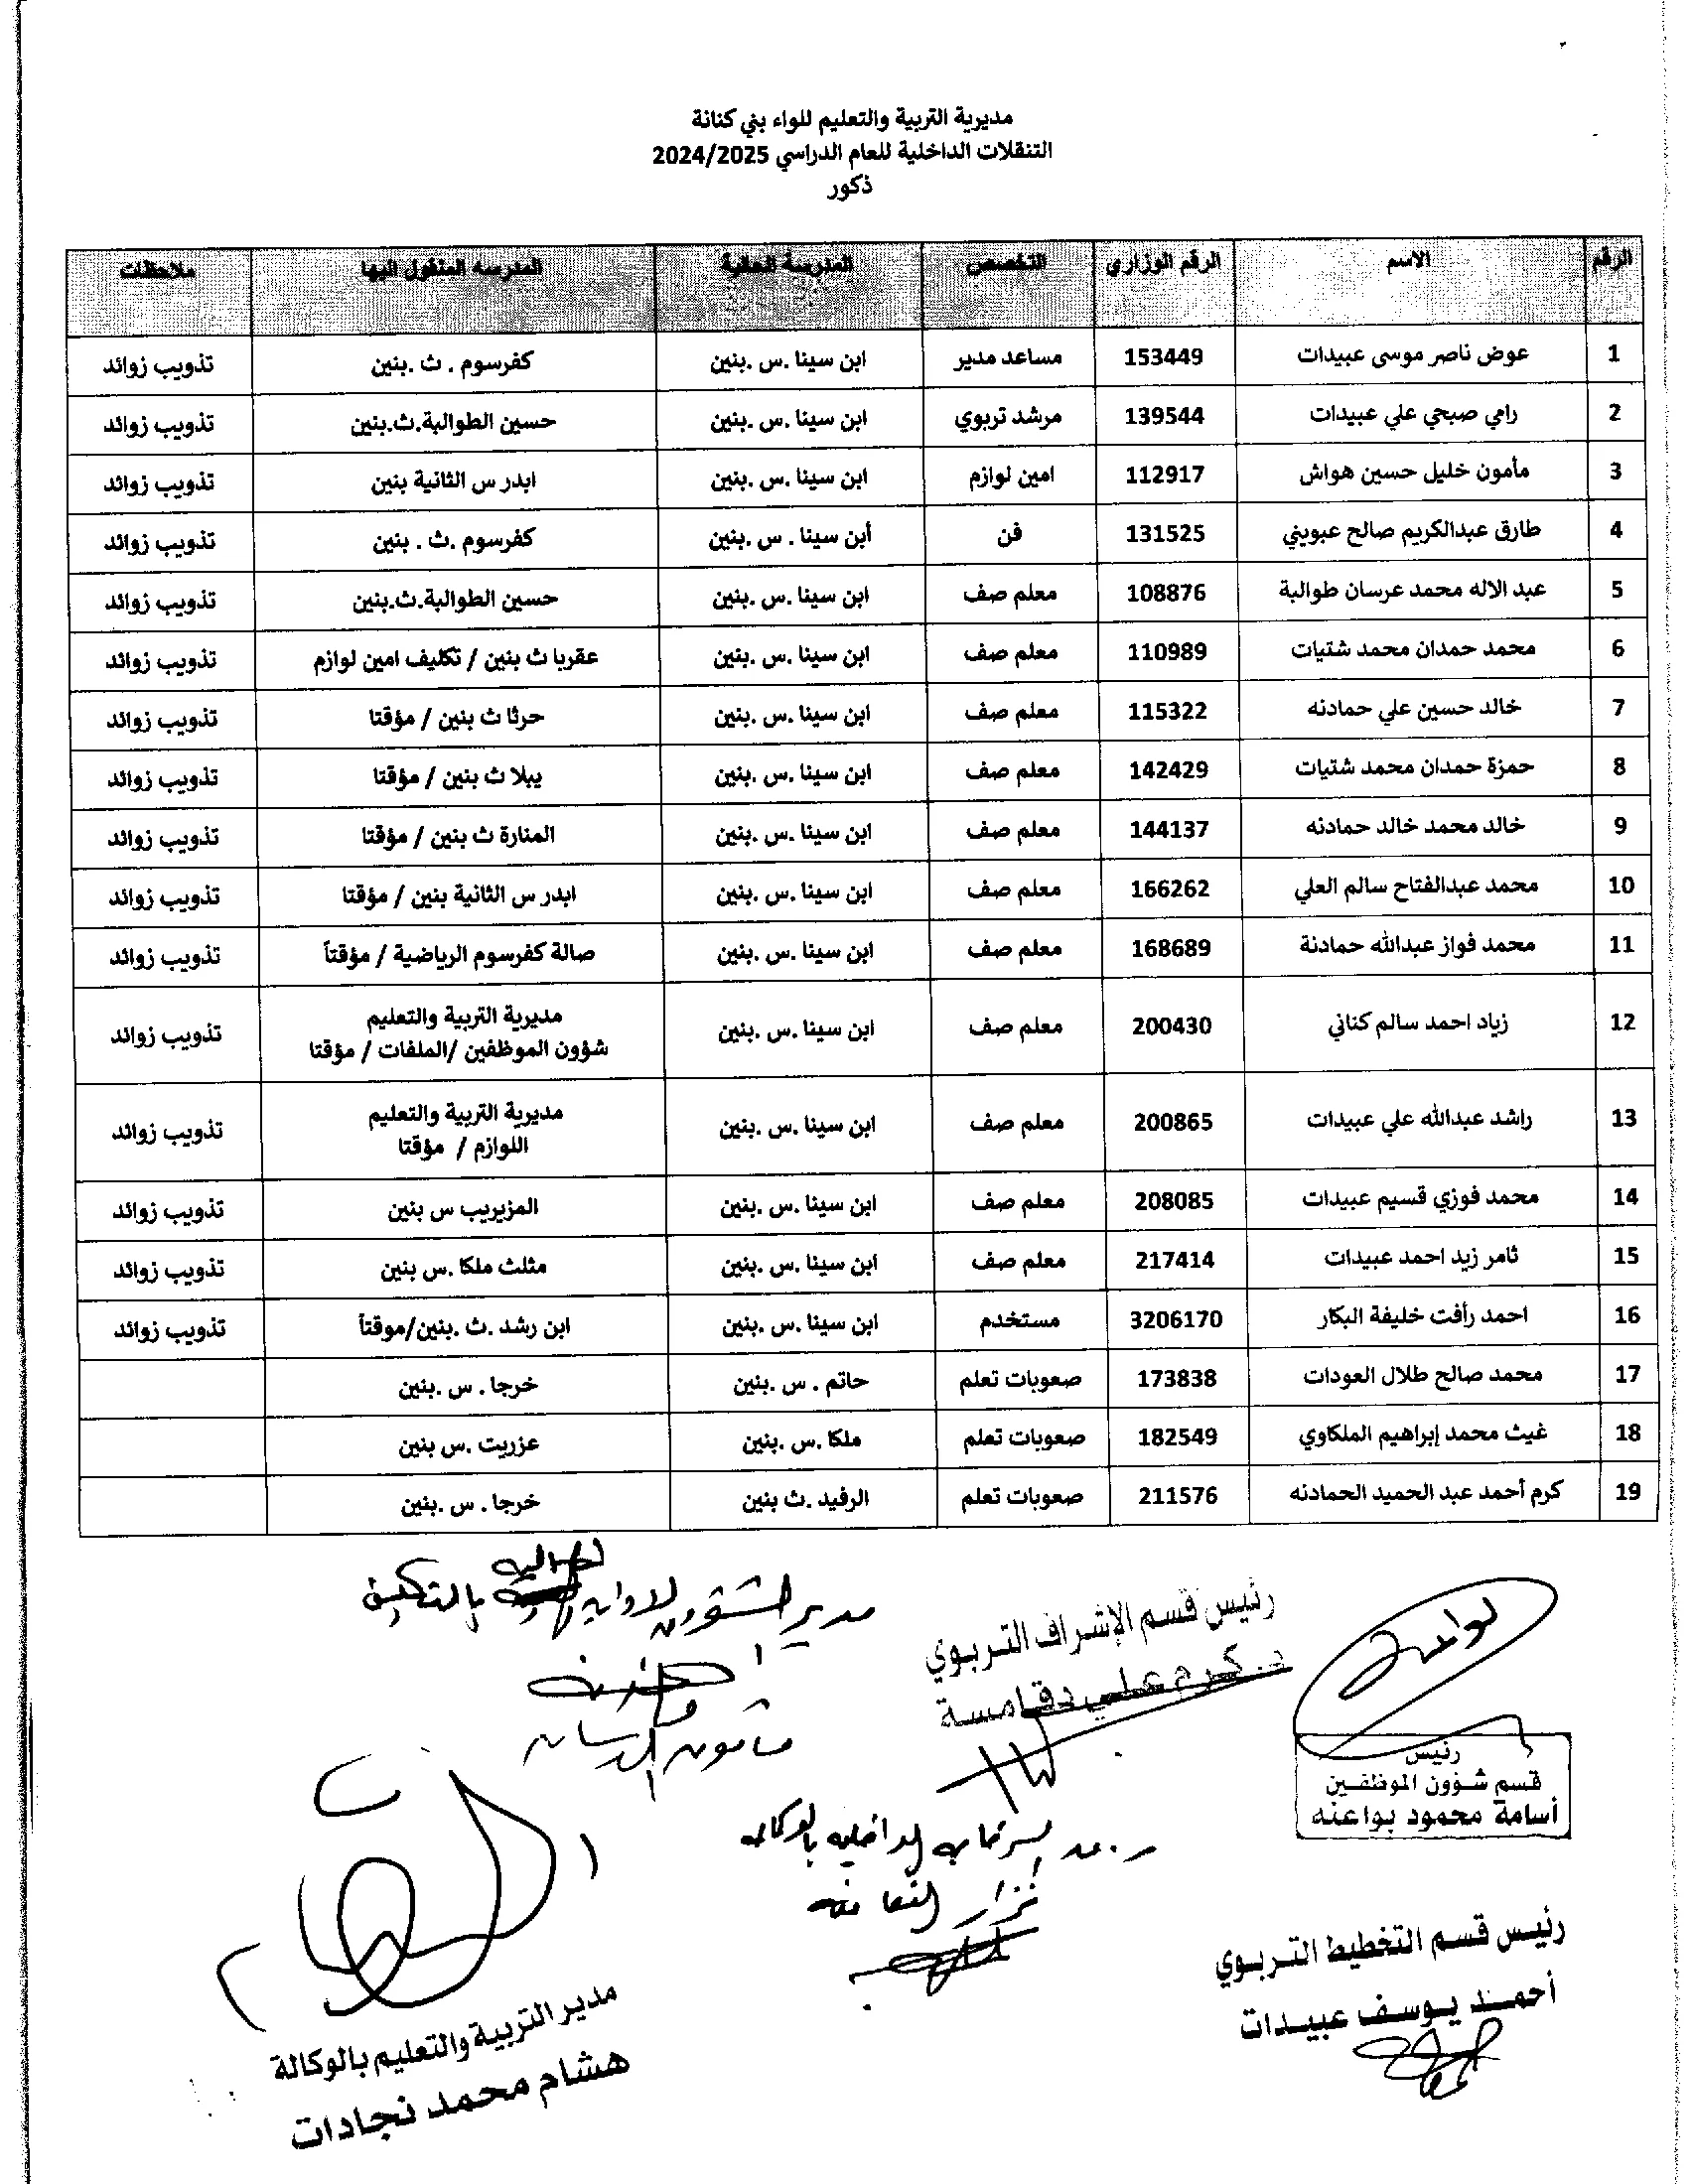 مديرية التربية والتعليم للواء بني كنانة
التنقلات الداخلية للعام الدراسي 2024/2025
ذكور
الرقم الاسم الرقم الوزاري التخصص المدرسة الحالية المدرسه المنقول اليها ملاحظات
1 عوض ناصر موسى عبيدات 153449 مساعد مدير ابن سينا .س .بنين كفرسوم . ث .بنين تذويب زوائد
2 رامي صبحي علي عبيدات 139544 مرشد تربوي ابن سينا .س .بنين حسين الطوالبة.ث.بنين تذويب زوائد
3 مأمون خليل حسين هواش 112917 امين لوازم ابن سينا .س .بنين ابدر س الثانية بنين تذويب زوائد
4 طارق عبدالكريم صالح عبويني 131525 فن أبن سينا . س .بنين كفرسوم .ث . بنين تذويب زوائد
5 عبد الاله محمد عرسان طوالبة 108876 معلم صف ابن سينا .س .بنين حسين الطوالبة.ث.بنين تذويب زوائد
6 محمد حمدان محمد شتيات 110989 معلم صف ابن سينا .س .بنين عقربا ث بنين / تكليف امين لوازم تذويب زوائد
7 خالد حسين علي حمادنه 115322 معلم صف ابن سينا .س .بنين حرثا ث بنين / مؤقتا تذويب زوائد
8 حمزة حمدان محمد شتيات 142429 معلم صف ابن سينا .س .بنين يبلا ث بنين / مؤقتا تذويب زوائد
9 خالد محمد خالد حمادنه 144137 معلم صف ابن سينا .س .بنين المنارة ث بنين / مؤقتا تذويب زوائد
10 محمد عبدالفتاح سالم العلي 166262 معلم صف ابن سينا .س .بنين ابدر س الثانية بنين / مؤقتا تذويب زوائد
11 محمد فواز عبدالله حمادنة 168689 معلم صف ابن سينا .س .بنين صالة كفرسوم الرياضية / مؤقتاً تذويب زوائد
12 زياد احمد سالم كناني 200430 معلم صف ابن سينا .س .بنين مديرية التربية والتعليم
شؤون الموظفين /الملفات / مؤقتا تذويب زوائد
13 راشد عبدالله علي عبيدات 200865 معلم صف ابن سينا .س .بنين مديرية التربية والتعليم
اللوازم / مؤقتا تذويب زوائد
14 محمد فوزي قسيم عبيدات 208085 معلم صف ابن سينا .س .بنين المزيريب س بنين تذويب زوائد
15 ثامر زيد احمد عبيدات 217414 معلم صف ابن سينا .س .بنين مثلث ملكا .س بنين تذويب زوائد
16 احمد رأفت خليفة البكار 3206170 مستخدم ابن سينا .س .بنين ابن رشد .ث .بنين/موقتاً تذويب زوائد
17 محمد صالح طلال العودات 173838 صعوبات تعلم حاتم . س .بنين خرجا . س .بنين
18 غيث محمد إبراهيم الملكاوي 182549 صعوبات تعلم ملكا .س .بنين عزريت .س بنين
19 كرم أحمد عبد الحميد الحمادنه 211576 صعوبات تعلم الرفيد .ث بنين خرجا . س .بنين
مدير الشؤون الادارية والمالية بالتكليف
رئيس قسم الإشراف التربوي
د. كرم علي دقامسة
رئيس
قسم شؤون الموظفين
أسامة محمود بواعنه
الداخلية بالوكالة
نزار
رئيس قسم التخطيط التربوي
أحمد يوسف عبيدات
مدير التربية والتعليم بالوكالة
هشام محمد نجادات